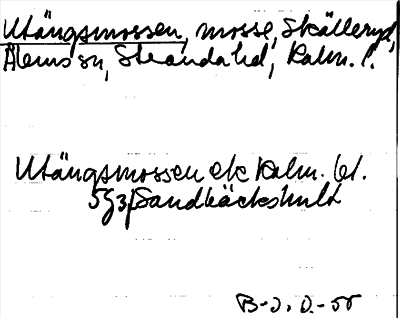 Utängsmossen, mosse, Skälleryd,
Ålems sn, Stranda hd, Kalm. l.
Utängsmossen ek Kalm. bl.
5g3f Sandbäckshult
B-J. D. -55